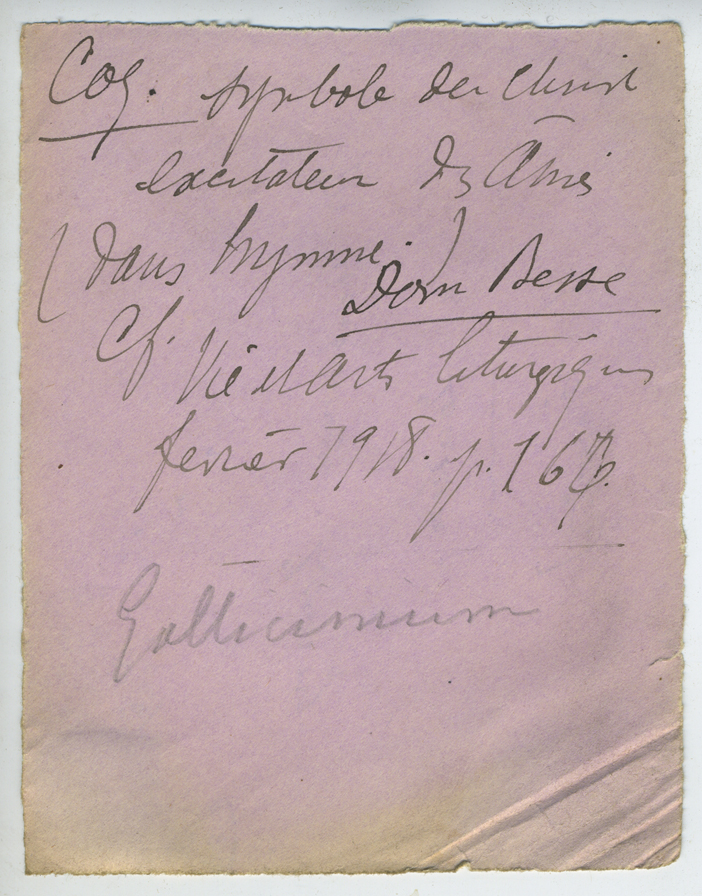 Coq. symbole du Christ
excitateur des Âmes
(dans hymne.)
Dom Besse
Cf. Vie et Arts liturgiques
février 1918. p. 16
Gallicinium